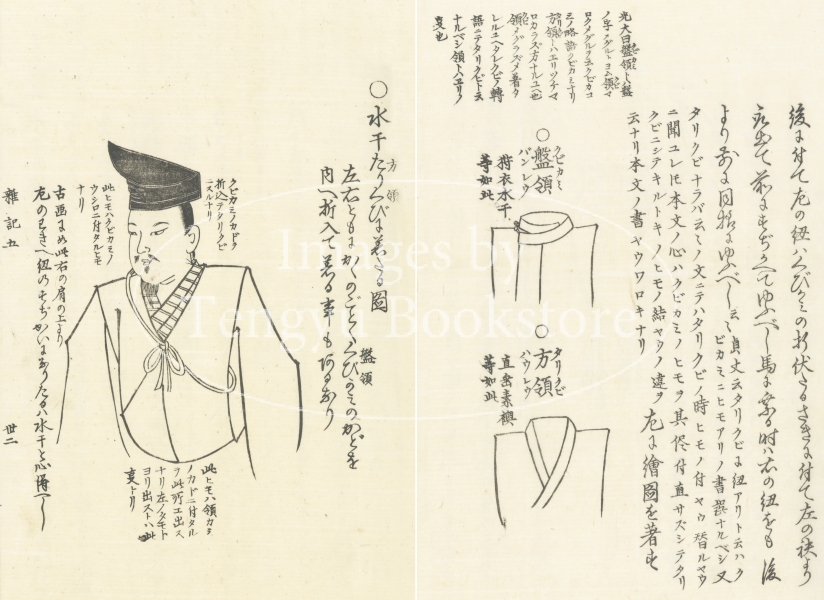 後に付て左の紐はくびかみの折伏たるさきに付て左の袂より
より前に同指にゆふべし云々貞丈云タリクビに紐アリト云ハク
ビカミニヒモアリノ書誤ナルベシ又
タリクビナラバ云ミノ文ニテハタリクビノ時ヒモノ付ヤウ替ルヤウ
ニ聞ユレ𪜈本文ノ心ハクビカミノヒモヲ其侭付直サズシテタリ
クビニシテキルトキノヒモノ結ヤウノ違ヲ
云ナリ本文ノ書ヤウワロキナリ
左に繪圖を著す
光大曰盤領ト盤
ノ字メグルトヨム領マ
ロクメグルヲ云クビカコ
ミノ略語クビカミナリ
方領トハエリツチマ
ロカラズ方ナルユ也
領メグラズメ着タ
レルユヘタレクビノ轉
語ニテタリクビト云
ナルベシ領トハエリノ
叓也
○盤領
クビカミ
バンレウ
狩衣水干
等如此
○方領
タリクビ
ハウレウ
直垂素襖
等如此
○水干たりくびに着たる圖
方領
左右ともにかくのごとくくびかみのかどを
盤領
内へ折入て着る事もあるなり
クビカミノカドヲ
折込テタリクビ
ニスルナリ
此ヒモハクビカミノ
ウシロニ付タルヒモ
ナリ
此ヒモハ領カタ
ノカドニ付タル
ヲ此所エ出ス
ナリ左ノタモト
ヨリ出スト八此
叓ナリ
古画にめ此右の肩の上より
左のわきへ紐のすぢかいにありたるハ水干と心得べし
雜記五
卅二
Images by
Tengyu Bookstore